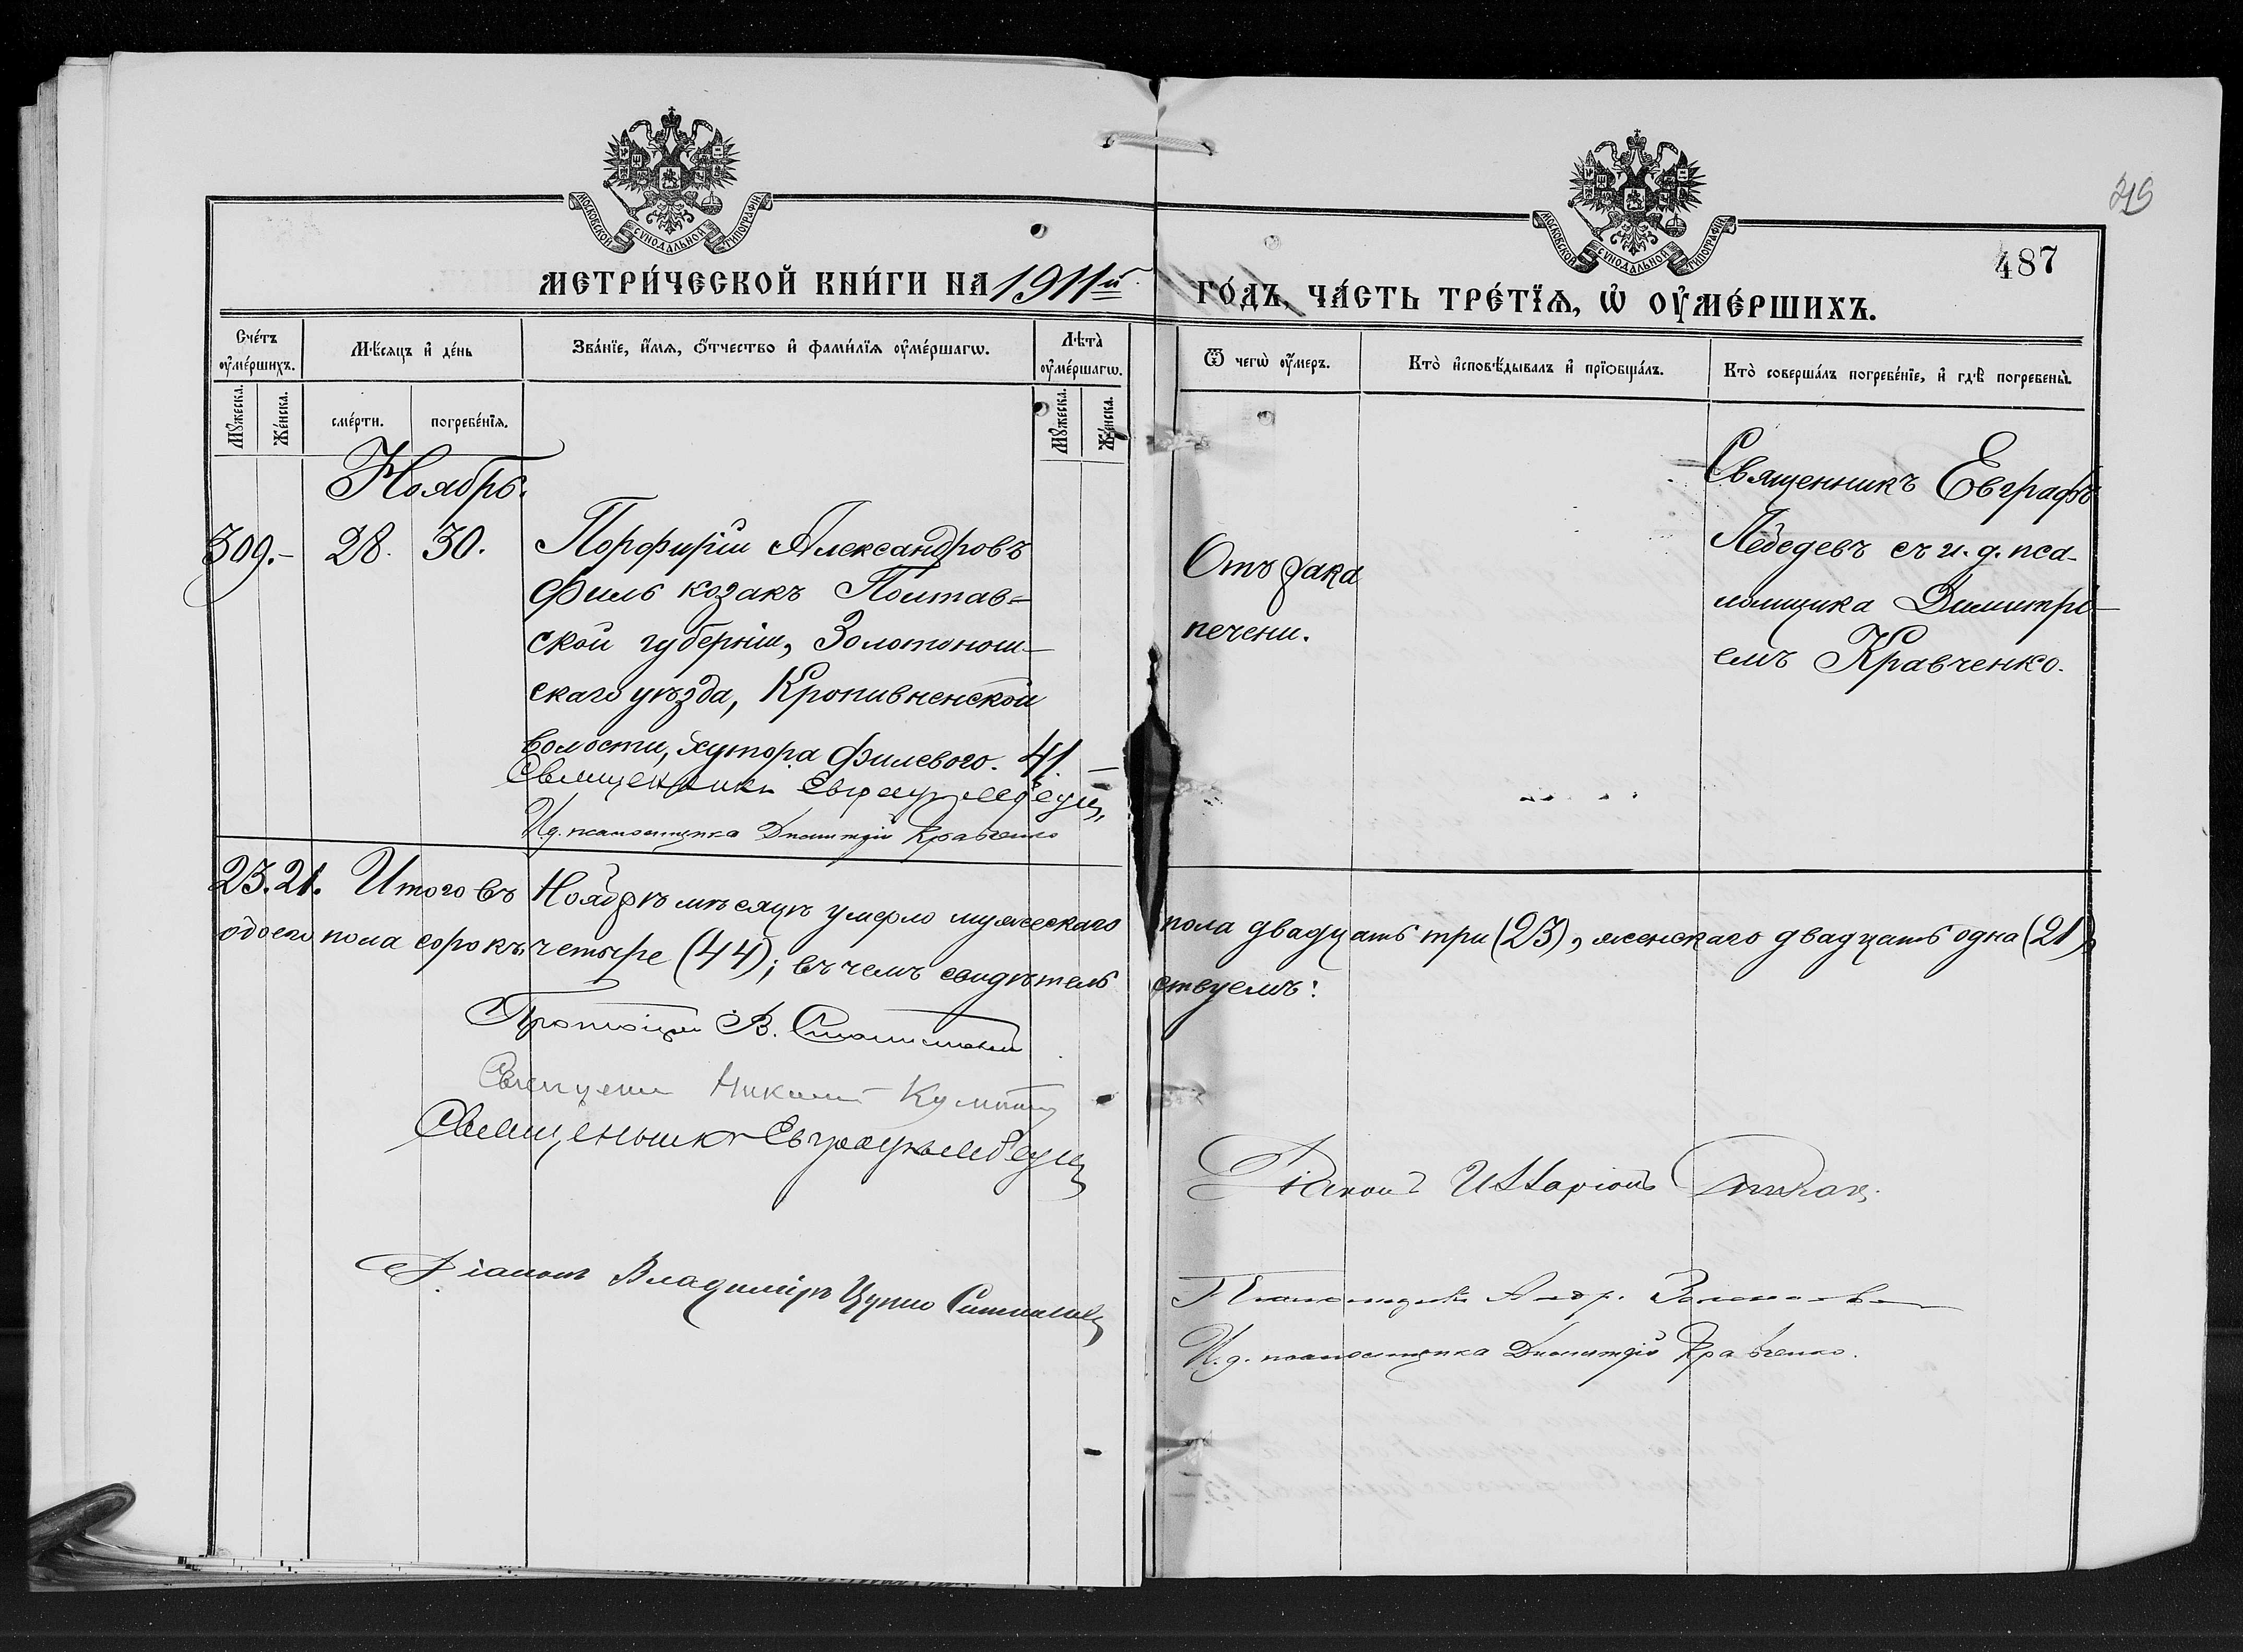 219
487
МОСКОВСКОЙ СѴНОДАЛЬНОЙ ТИПОГРАФІИ
МОСКОВСКОЙ СѴНОДАЛЬНОЙ ТИПОГРАФІИ
МЕТРИ́ЧЕСКОЙ КНИ́ГИ НА 1911й ГО́ДЪ, ЧА́СТЬ ТРЕ́ТЇѦ, Ѡ҆ ОУ҆МЕ́РШИХЪ.
Сче́тъ оу҆ме́ршихъ.
Мꙋ́жеска.
Же́нска.
Мѣ́сѧцъ и҆ де́нь
сме́рти.
погребе́нїѧ.
Зва́нїе, и҆́мѧ, ѻ҆́тчество и҆ фами́лїѧ оу҆ме́ршагѡ.
Лѣ́та̀ оу҆ме́ршагѡ.
Мꙋ́жеска.
Же́нска.
Ѿ чегѡ̀ оу҆́меръ.
Кто̀ и҆сповѣ́дывалъ и҆ прїѡбща́лъ.
Кто̀ соверша́лъ погребе́нїе, и҆ гдѣ̀ погребены̀.
Ноябрь.
309.– 28. 30.
Порфирій Александровъ
Филь козакъ Полтав=
ской губерніи, Золотонош-
скаго уѣзда, Кропивненской
волости, хутора Филевого. 41. –
Священникъ Евграфъ Лебедевъ
И.д. псаломщика Димитрій Кравченко
Отъ рака
печени.
Священникъ Евграфъ
Лебедевъ съ и.д. пса-
ломщика Димитрі-
емъ Кравченко.
23. 21. Итого въ Ноябрѣ мѣсяцѣ умерло мужескаго пола двадцать три (23), женскаго двадцать одна (21),
обоего пола сорокъ четыре (44); въ чемъ свидѣтель ствуемъ:
Протоіерей В.
Священникъ
Священникъ Евграфъ Лебедевъ
Діаконъ Илларіонъ
Діаконъ Владиміръ
Псаломщикъ
И.д. псаломщика Димитрій Кравченко.